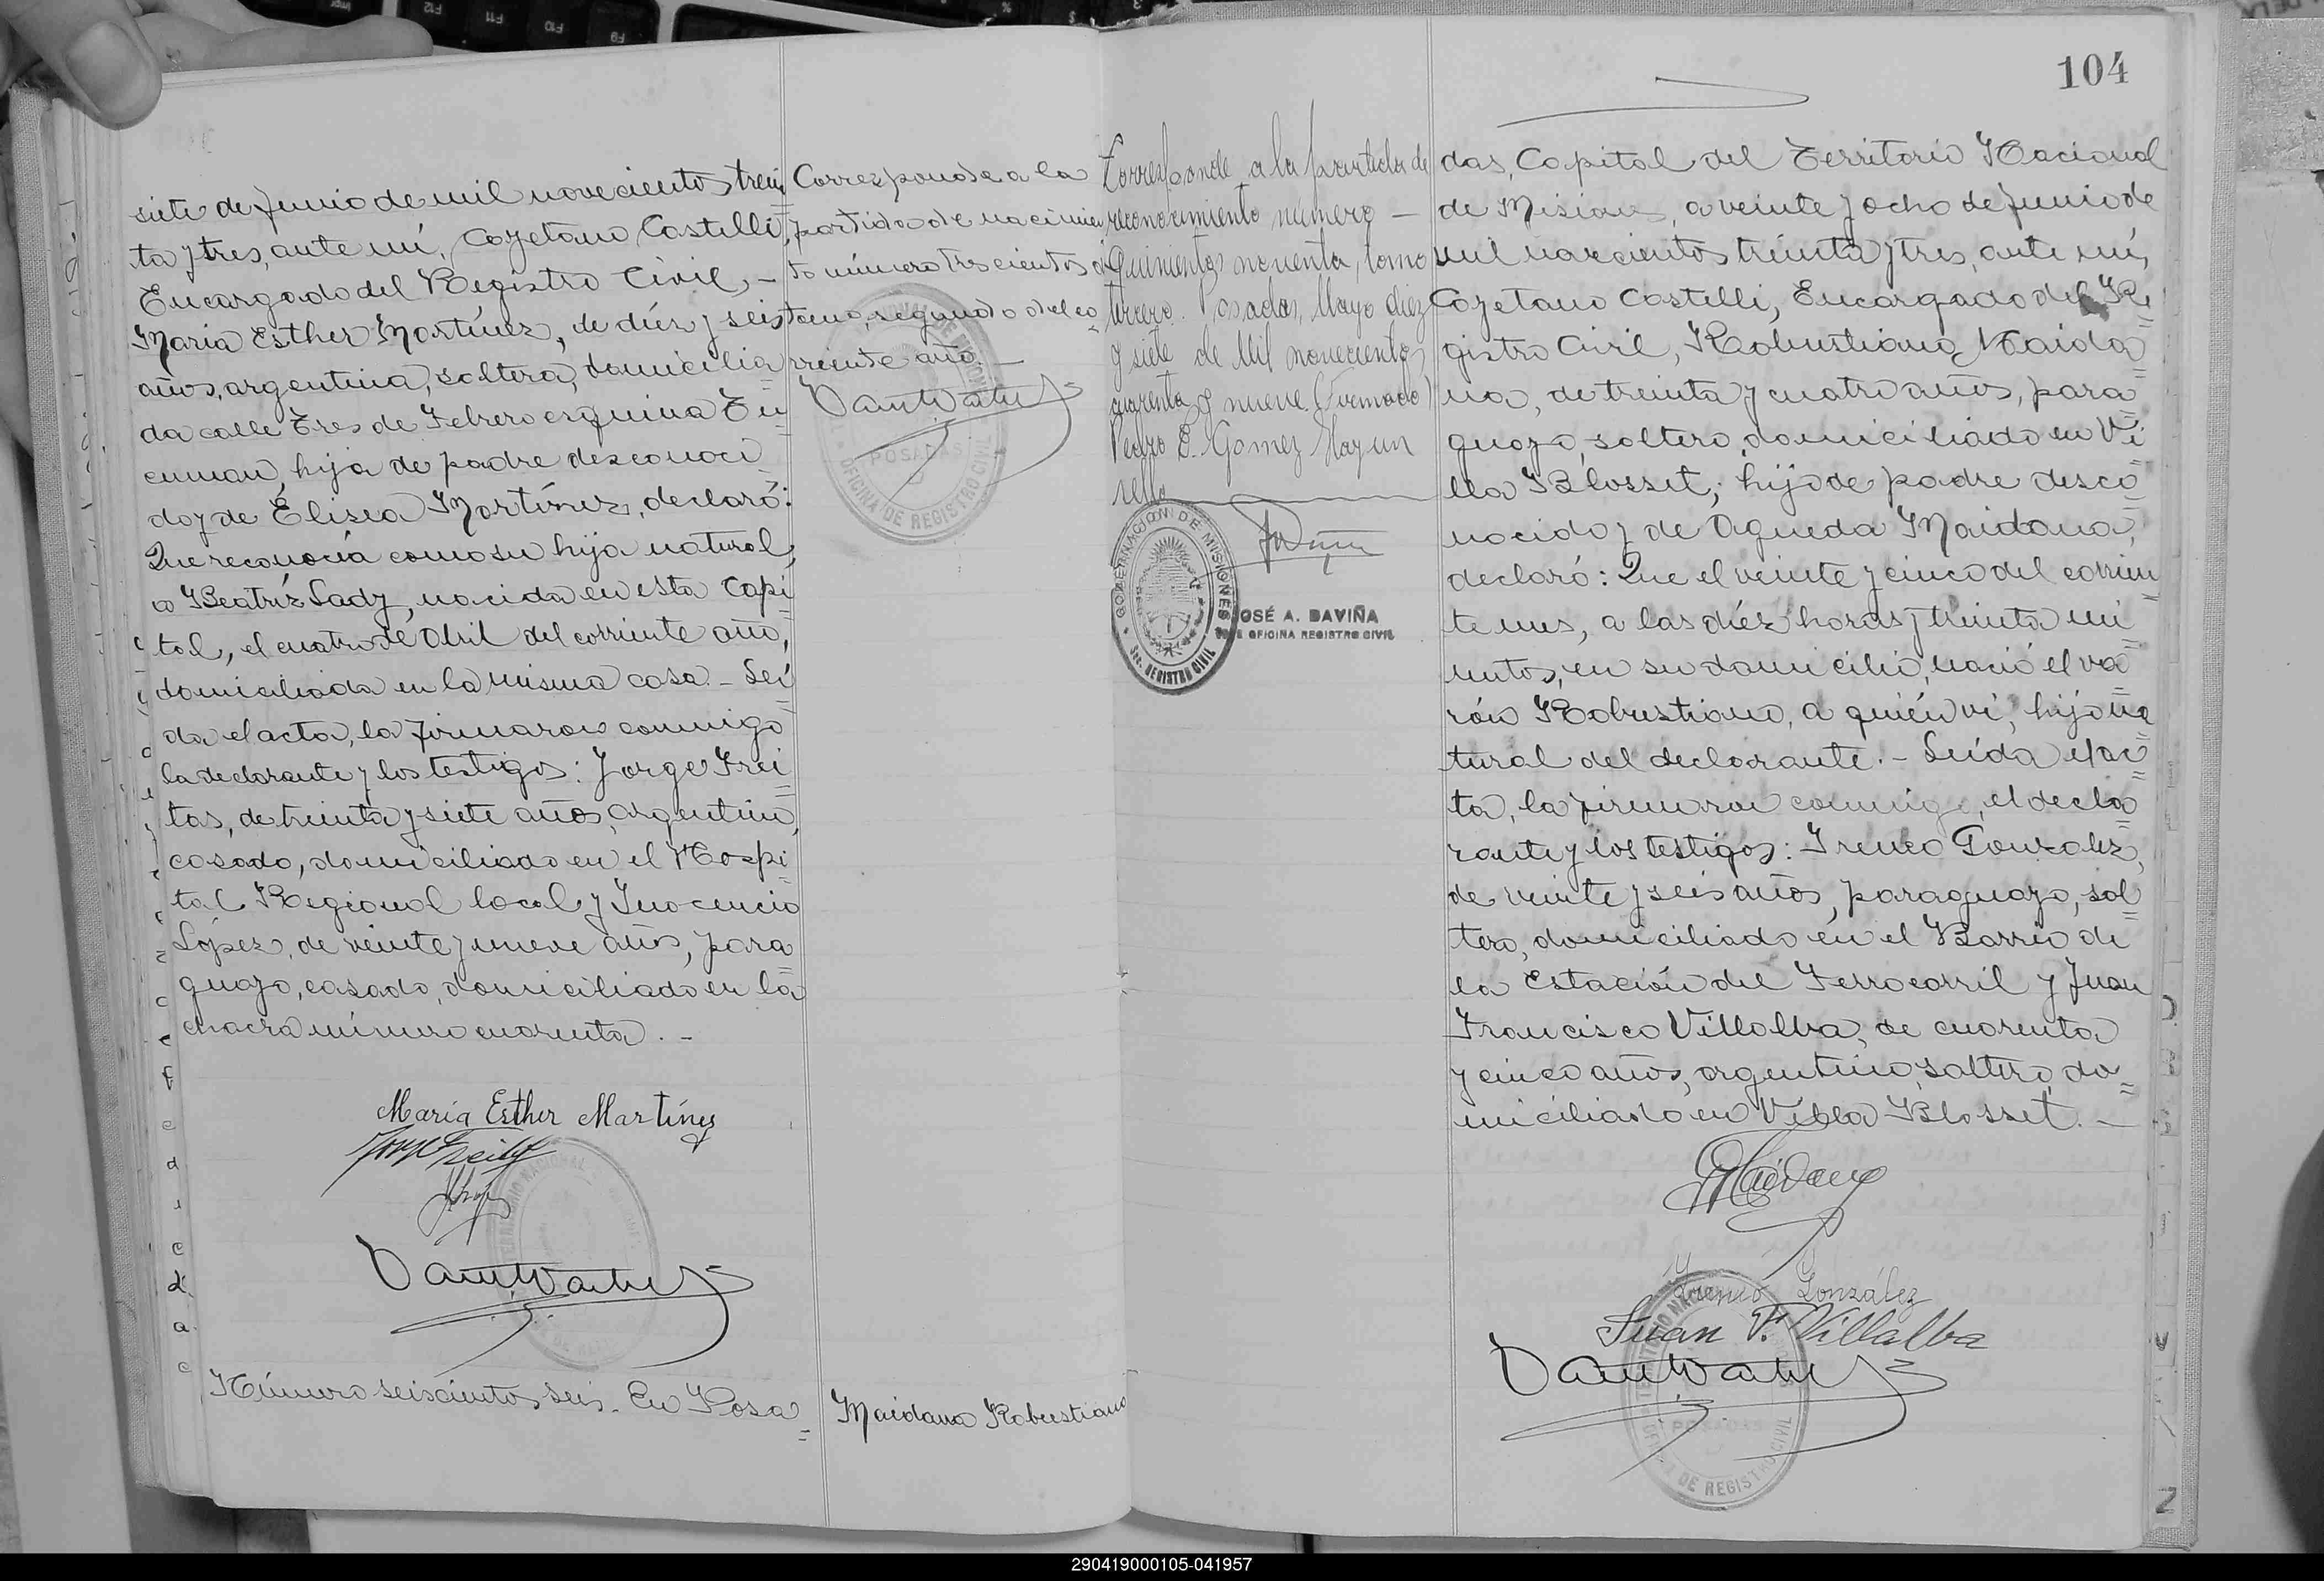 siete de Junio de mil novecientos trein
ta y tres, ante mí, Cayetano Castelli,
Encargado del Registro Civil, -
Maria Esther Martínez, de diéz y seis
años, argentina, soltera, domicilia
da calle Tres de Febrero esquina Tu
cuman, hija de padre desconoci
do y de Elisea Martínez, declaró:
Que reconocía como su hija natural,
a Beatríz Lady, nacida en esta Capi
tal, el cuatro de Abril del corriente año,
domiciliada en la misma casa. - Leí
da el acta, la firmaron conmigo
la declarante y los testigos: Jorge Frei
tas, de treinta y siete años, argentino,
casado, domiciliado en el Hospi
tal Regional local y Inocencio
López, de veinte y nueve años, para
guayo, casado, domiciliado en la
chacra número cuarenta. -
Maria Esther Martínez
Número seiscientos seis. En Posa
Corresponde a la
partida de nacimien
to número trescientos
tomo segundo del co
rriente año.
POSADAS
OFICINA DE REGISTRO CIVIL
Maidana Robustiano
Corresponde a la partida de
reconocimiento número -
Quinientos noventa, tomo
tercero. Posadas, Mayo diez
y siete de Mil novecientos
cuarenta y nueve (Firmado)
Pedro E. Gomez Hay un
sello
GOBERNACION DE MISIONES
Sec. REGISTRO CIVIL
JOSÉ A. DAVIÑA
JEFE OFICINA REGISTRO CIVIL
104
das, Capital del Territorio Nacional
de Misiones, a veinte y ocho de Junio de
mil novecientos treinta y tres, ante mí,
Cayetano Castelli, Encargado del Re
gistro Civil, Robustiano Maida
na, de treinta y cuatro años, para
guayo, soltero, domiciliado en Vi
lla Blosset, hijo de padre desco
nocido y de Agueda Maidana,
declaró: Que el veinte y cinco del corrien
te mes, a las diéz horas y treinta mi
nutos, en su domicilio, nació el va
rón Robustiano, a quién ví, hijo na
tural del declarante. - Leída el ac
ta, la firmaron conmigo, el decla
rante y los testigos: Ireneo Gonzalez,
de veinte y seis años, paraguayo, sol
tero, domiciliado en el Barrio de
la Estación del Ferrocarril y Juan
Francisco Villalba, de cuarenta
y cinco años, argentino, soltero, do
miciliado en Villa Blosset. -
RMaidana
Ireneo González
Juan F. Villalba
POSADAS
DE REGISTRO CIVIL
290419000105-041957